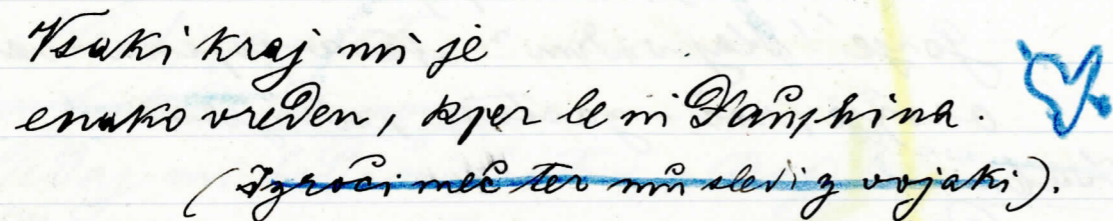 Vsaki kraj mi je
enako vreden, kjer le ni Dauphina.
(Izroči meč ter mu sledi z vojaki).